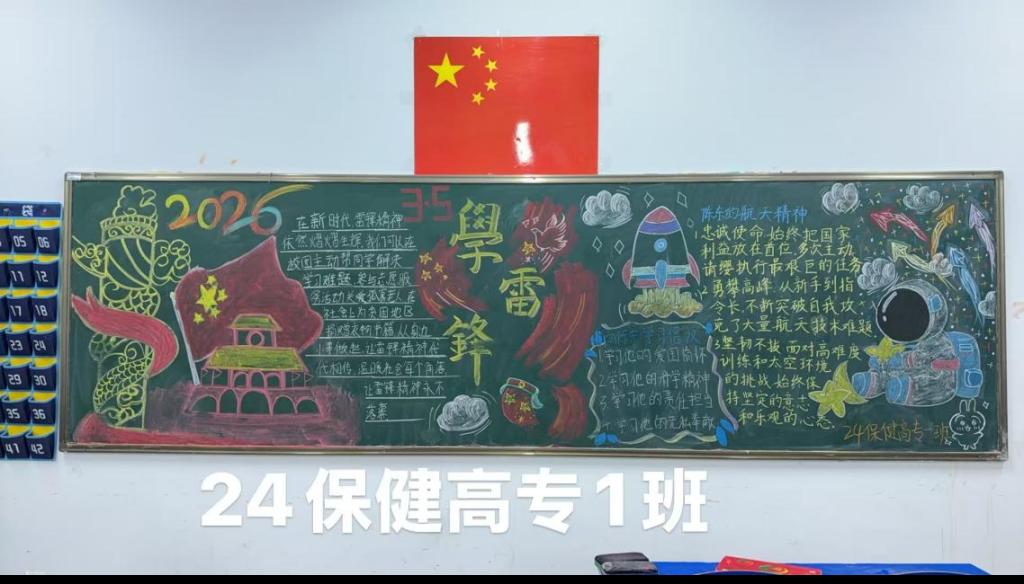 2026
3·5
在新时代 雷锋精神
依然熠熠生辉 我们可以在
校园主动帮同学解决
学习难题 参与志愿服
务活动关爱孤寡老人 在
社会上为
从身边
小事做起 让雷锋精神代
代相传 温暖社会每个角落
让雷锋精神永不
落幕
學
雷
鋒
1学习他的爱国情怀
2.学习他的 精神
3.学习他的责任担当
4.学习他的无私奉献
陈冬的航天精神
忠诚使命 始终把国家
利益放在首位 多次主动
请缨执行最艰巨的任务
2勇攀高峰 从新手到指
令长 不断突破自我 攻
克了大量航天技术难题
3坚韧不拔 面对高难度
训练和太空环境
的挑战 始终保
持坚定的意志
和乐观的心态
24保健高专一班
05 06
11 12
17 18
23 24
29 30
35 36
41 42
24保健高专1班